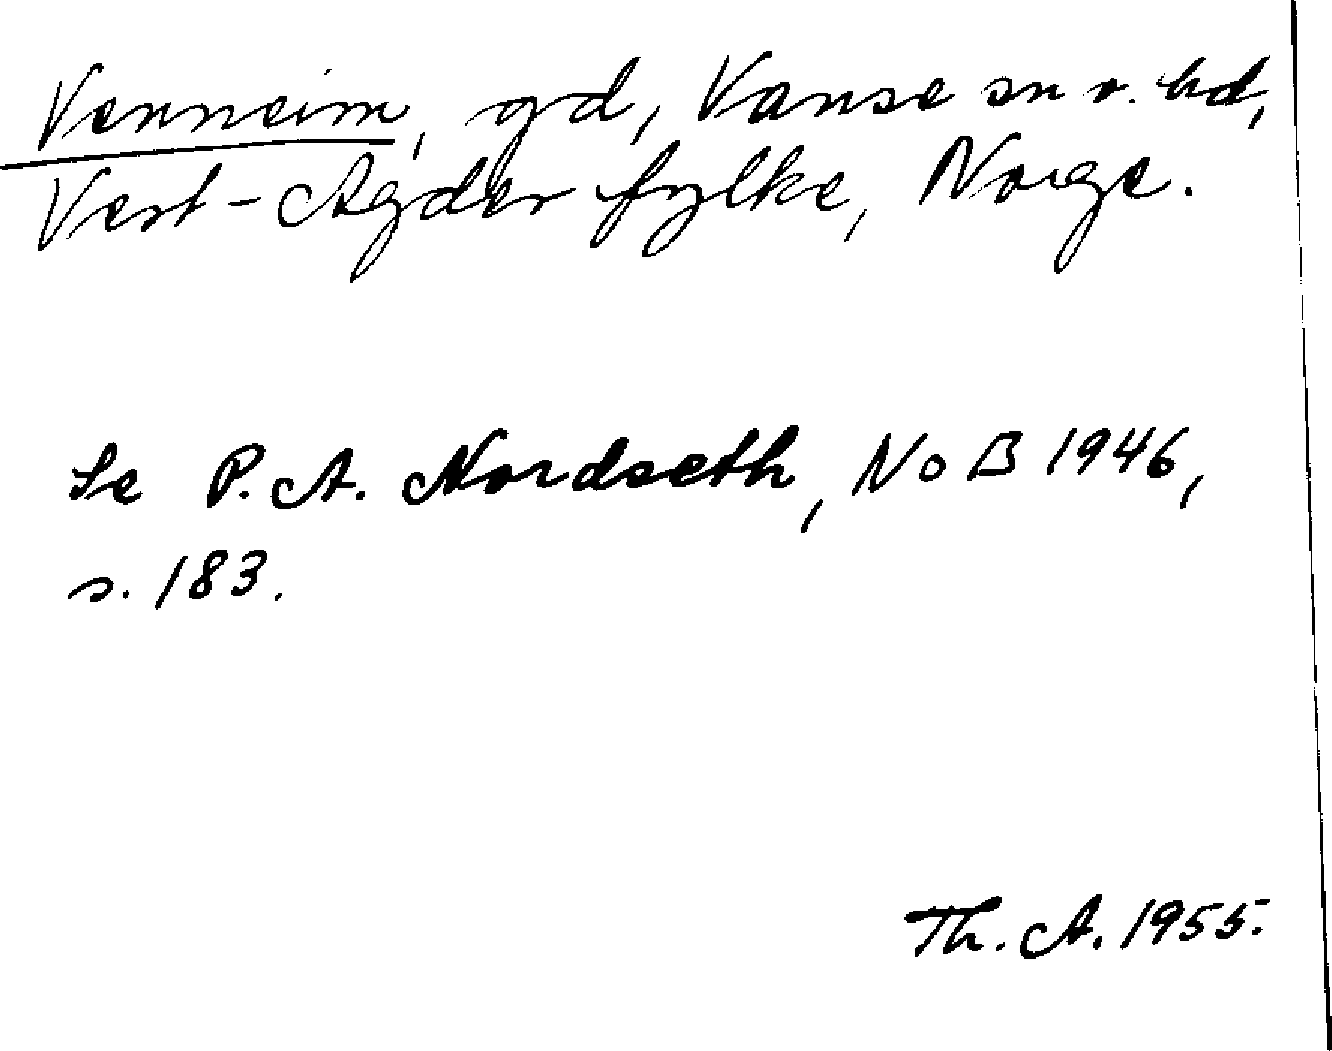 Venneim, gd, Vanse sn o. hd,
Vest-Agder fylke, Norge.
Se P. A. Nordseth, NoB 1946,
s. 183.
Th. A. 1955.